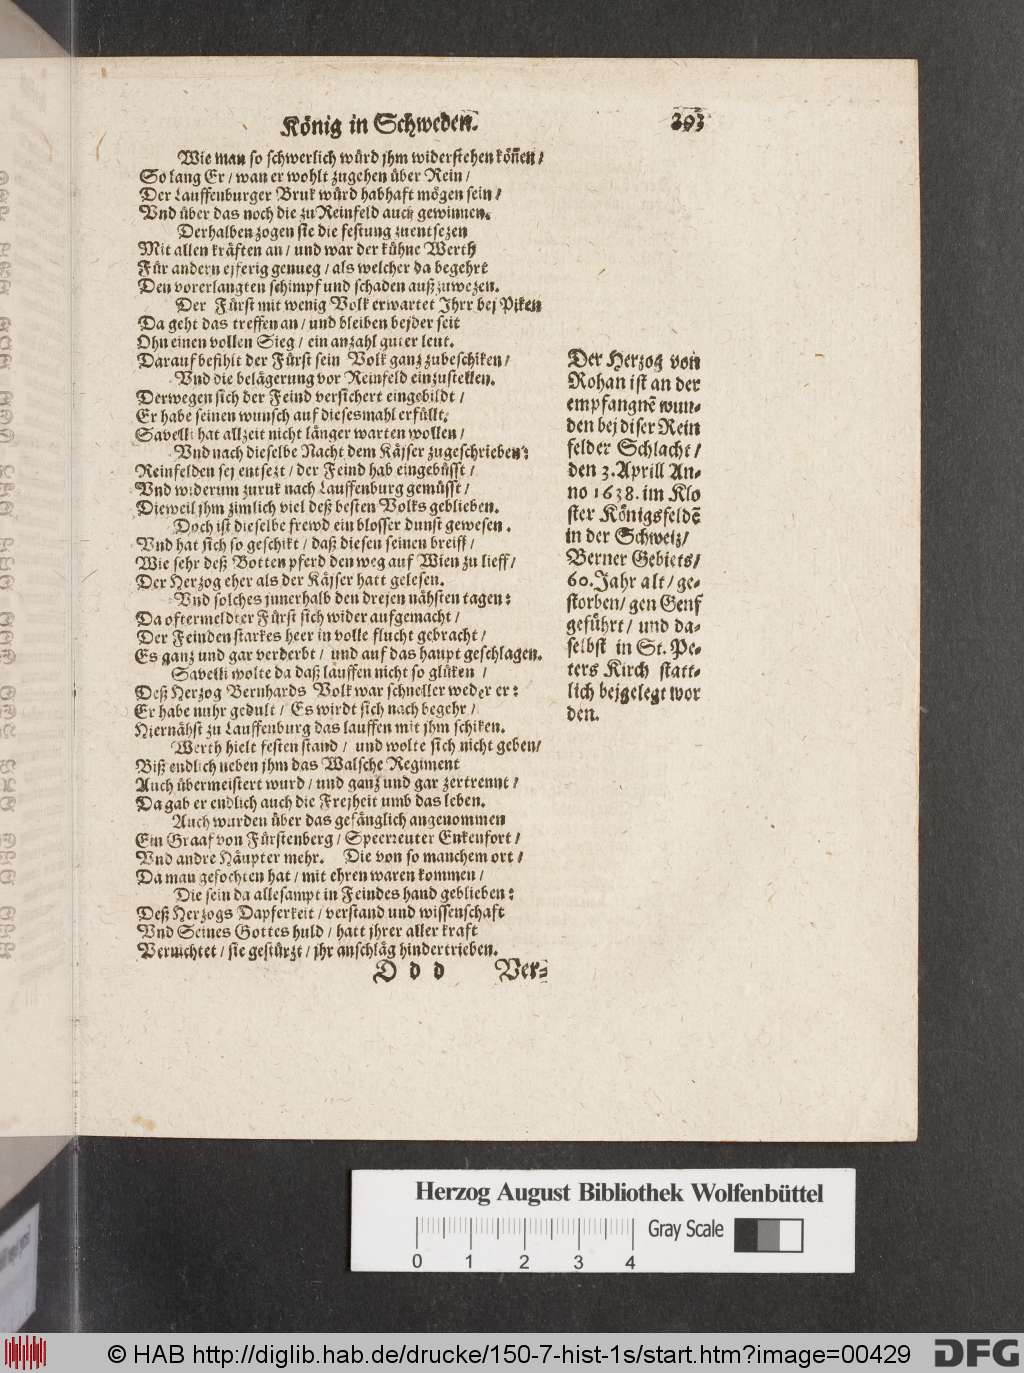 König in Schweden. 393
Wie man so schwerlich würd jhm widerstehen köñen /
So lang Er / wan er wohlt zugehen über Rein /
Der Lauffenburger Bruk würd habhaft mögen sein /
Vnd über das noch die zu Reinfeld auch gewinnen.
Derhalben zogen sie die festung zuentsezen
Mit allen kräften an / und war der kühne Werth
Für andern eiferig genueg / als welcher da begehrt
Den vorerlangten schimpf und schaden auß zuwezen.
Der Fürst mit wenig Volk erwartet Jhrr bej Piken
Da geht das treffen an / und bleiben bejder seit
Ohn einen vollen Sieg / ein anzahl guter leut.
Darauf befihlt der Fürst sein Volk ganz zubeschiken /
Vnd die belägerung vor Reinfeld einzustellen.
Derwegen sich der Feind versichert eingebildt /
Er habe seinen wunsch auf diesesmahl erfüllt.
Savelli hat allzeit nicht länger warten wollen /
Vnd nach dieselbe Nacht dem Käjser zugeschrieben:
Reinfelden sej entsezt / der Feind hab eingebüsst /
Vnd widerum zuruk nach Lauffenburg gemüsst /
Dieweil jhm zimlich viel deß besten Volks geblieben.
Doch ist dieselbe frewd ein blosser dunst gewesen.
Vnd hat sich so geschikt / daß diesen seinen breiff /
Wie sehr deß Botten pferd den weg auf Wien zu lieff /
Der Herzog eher als der Käjser hatt gelesen.
Vnd solches jnnerhalb den drejen nähsten tagen:
Da oftermeldter Fürst sich wider aufgemacht /
Der Feinden starkes heer in volle flucht gebracht /
Es ganz und gar verderbt / und auf das haupt geschlagen.
Savelli wolte da daß lauffen nicht so glüken /
Deß Herzog Bernhards Volk war schneller weder er:
Er habe nuhr gedult / Es wirdt sich nach begehr /
Hiernähst zu Lauffenburg das lauffen mit jhm schiken.
Werth hielt festen stand / und wolte sich nicht geben /
Biß endlich neben jhm das Walsche Regiment
Auch übermeistert wurd / und ganz und gar zertrennt /
Da gab er endlich auch die Frejheit umb das leben.
Auch wurden über das gefänglich angenommen
Ein Graaf von Fürstenberg / Speerreuter Enkenfort /
Vnd andre Häupter mehr. Die von so manchem ort /
Da man gefochten hat / mit ehren waren kommen /
Die sein da allesampt in Feindes hand geblieben:
Deß Herzogs Dapferkeit / verstand und wissenschaft
Vnd Seines Gottes huld / hatt jhrer aller kraft
Vernichtet / sie gestürzt / jhr anschläg hindertrieben.
D d d Ver-
Der Herzog von
Rohan ist an der
empfangnẽ wun-
den bej diser Rein
felder Schlacht /
den 3. Aprill An-
no 1638. im Klo
ster Königsfeldẽ
in der Schweiz /
Berner Gebiets /
60. Jahr alt / ge-
storben / gen Genf
geführt / und da-
selbst in St. Pe-
ters Kirch statt-
lich bejgelegt wor
den.
Herzog August Bibliothek Wolfenbüttel
Gray Scale
0 1 2 3 4
© HAB http://diglib.hab.de/drucke/150-7-hist-1s/start.htm?image=00429
DFG